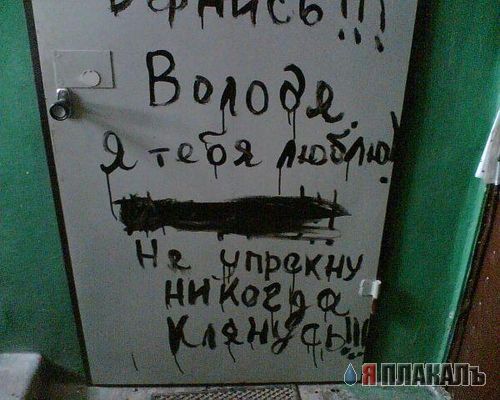 Вернись!!!
Володя.
Я тебя люблю!
Не упрекну
никогда
клянусь!!!
ЯПЛАКАЛЪ